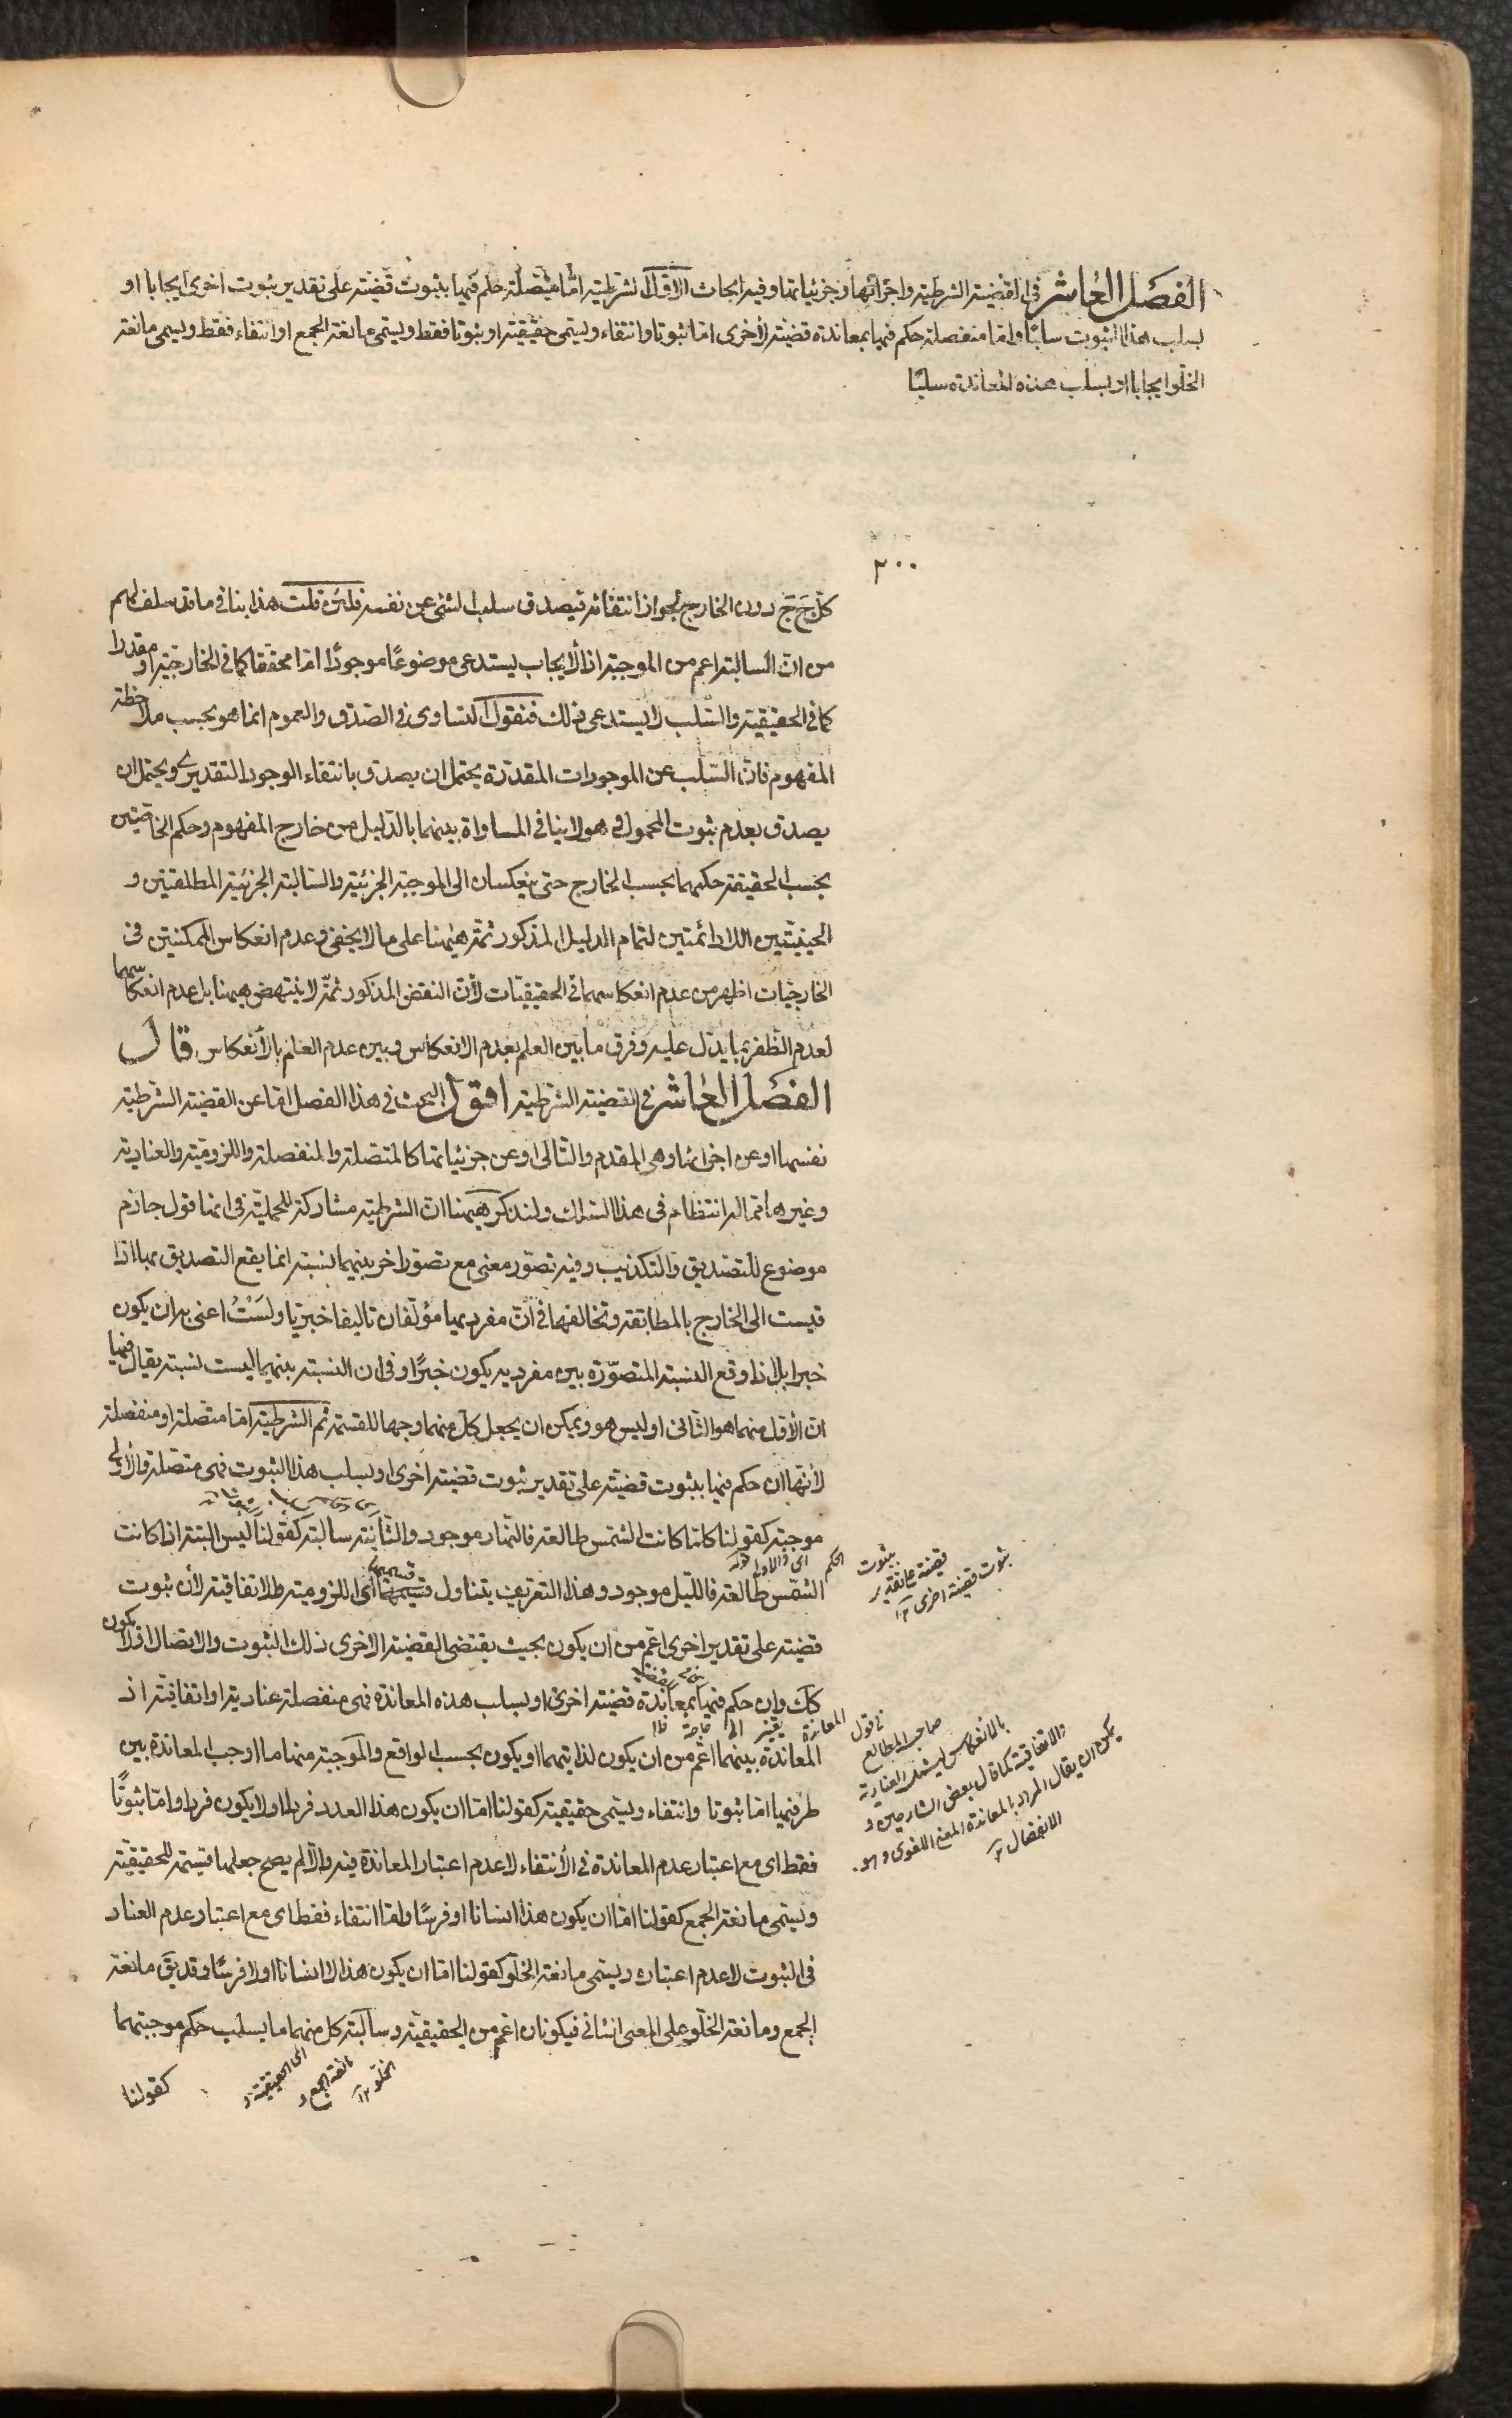 الفصل العاشر في القضية الشرطية واجزائها وجزئياتها وفيه ابحاث الاول الشرطية اما متصلة حكم فيها بثبوت قضية على تقدير ثبوت اخرى ايجابا او
بسلب هذا الثبوت سلبا واما منفصلة حكم فيها بمعاندة قضية لأخرى اما ثبوتا وانتفاء ويسمى حقيقية او ثبوتا فقط ويسمى مانعة الجمع او انتفاء فقط ويسمى مانعة
الخلو ايجابا او بسلب هذه المعاندة سلبا
٢٠٠
كل ج ج دون الخارج لجواز انتفائه فيصدق سلب الشئ عن نفسه فلئن قلت هذا ينافي ما قد سلف لهم
من ان السالبة اعم من الموجبة اذ الأيجاب يستدعى موضوعًا موجودًا اما محققا كما في الخارجية او مقدرا
كما في الحقيقية والسلب لا يستدعى ذلك فنقول التساوى في الصدق والعموم انما هو بحسب ملاحظة
المفهوم فان السلب عن الموجودات المقدرة يحتمل ان يصدق بانتفاء الوجود التقديرى ويحتمل ان
يصدق بعدم ثبوت المحمول وهو لا ينافي المساواة بينهما بالدليل من خارج المفهوم وحكم الخاصتين
بحسب الحقيقة حكمهما بحسب الخارج حتى ينعكسان الى الموجبة الجزئية والسالبة الجزئية المطلقتين و
الحينيتين اللادائمتين لتمام الدليل المذكور ثمة ههنا على ما لا يخفى وعدم انعكاس الممكنتين في
الخارجيات اظهر من عدم انعكاسهما في الحقيقيات لأن النقض المذكور ثمة لا ينتهض ههنا بل عدم انعكاسهما
لعدم الظفر بما يدل عليه وفرق ما بين العلم بعدم الانعكاس وبين عدم العلم بالأنعكاس قال
الفصل العاشر في القضية الشرطية اقول البحث في هذا الفصل اما عن القضية الشرطية
نفسها او عن اجزائها وهى المقدم والتالى او عن جزئياتها كالمتصلة والمنفصلة واللزومية والعنادية
وغيرها مما له انتظام في هذا السلك ولنذكر ههنا ان الشرطية مشاركة للحملية في انها قول جازم
موضوع للتصديق والتكذيب وفيه تصور معنى مع تصور اخر بينهما نسبة انما يقع التصديق بها اذا
قيست الى الخارج بالمطابقة وتخالفها في ان مفرديها مؤلفان تاليفا خبريا ولست اعنى به ان يكون
خبرا بل اذا وقع النسبة المتصورة بين مفرديه يكون خبرًا وفى ان النسبة بينهما ليست نسبة يقال فيها
ان الأول منهما هو الثانى او ليس هو ويمكن ان يجعل كل منهما وجها للقسمة ثم الشرطية اما متصلة او منفصلة
لأنها ان حكم فيها بثبوت قضية على تقدير ثبوت قضية اخرى او بسلب هذا الثبوت فهى متصلة والأولى
موجبة كقولنا كلما كانت الشمس طالعة فالنهار موجود والثانية سالبة كقولنا ليس البتة اذا كانت
الشمس طالعة فالليل موجود وهذا التعريف يتناول قسيمهما اى اللزومية والاتفاقية لأن ثبوت
قضية على تقدير اخرى اعم من ان يكون بحيث يقتضى القضية الاخرى ذلك الثبوت والاتصال او لا يكون
كك وان حكم فيها بمعاندة قضية اخرى او بسلب هذه المعاندة فهى منفصلة عنادية او اتفاقية اذ
المعاندة بينهما اعم من ان يكون لذاتيهما او يكون بحسب الواقع والموجبة منهما ما اوجب المعاندة بين
طرفيها اما ثبوتا وانتفاء ويسمى حقيقية كقولنا اما ان يكون هذا العدد فردا او لا يكون فردا واما ثبوتًا
فقط اى مع اعتبار عدم المعاندة في الأنتفاء لا عدم اعتبار المعاندة فيه والا لم يصح جعلها قسيمة للحقيقية
ويسمى مانعة الجمع كقولنا اما ان يكون هذا انسانا او فرسًا واما انتفاء فقط اى مع اعتبار عدم العناد
في الثبوت لا عدم اعتباره ويسمى مانعة الخلو كقولنا اما ان يكون هذا لا انسانا او لا فرسًا وقد يق مانعة
الجمع ومانعة الخلو على المعنى الثانى فيكونان اعم من الحقيقية وسالبة كل منهما ما يسلب حكم موجبتهما
كقولنا
اى الحقيقية و
مانعة الجمع و
الخلو ١٢
الحكم بثبوت
قضية على تقدير
ثبوت قضية اخرى ١٢
في قول
صاحب المطالع
بالأنعكاس ليشمل العنادية
والاتفاقية كما قال بعض الشارحين و
يمكن ان يقال المراد بالمعاندة المعنى اللغوى وهو
الانفصال ١٢